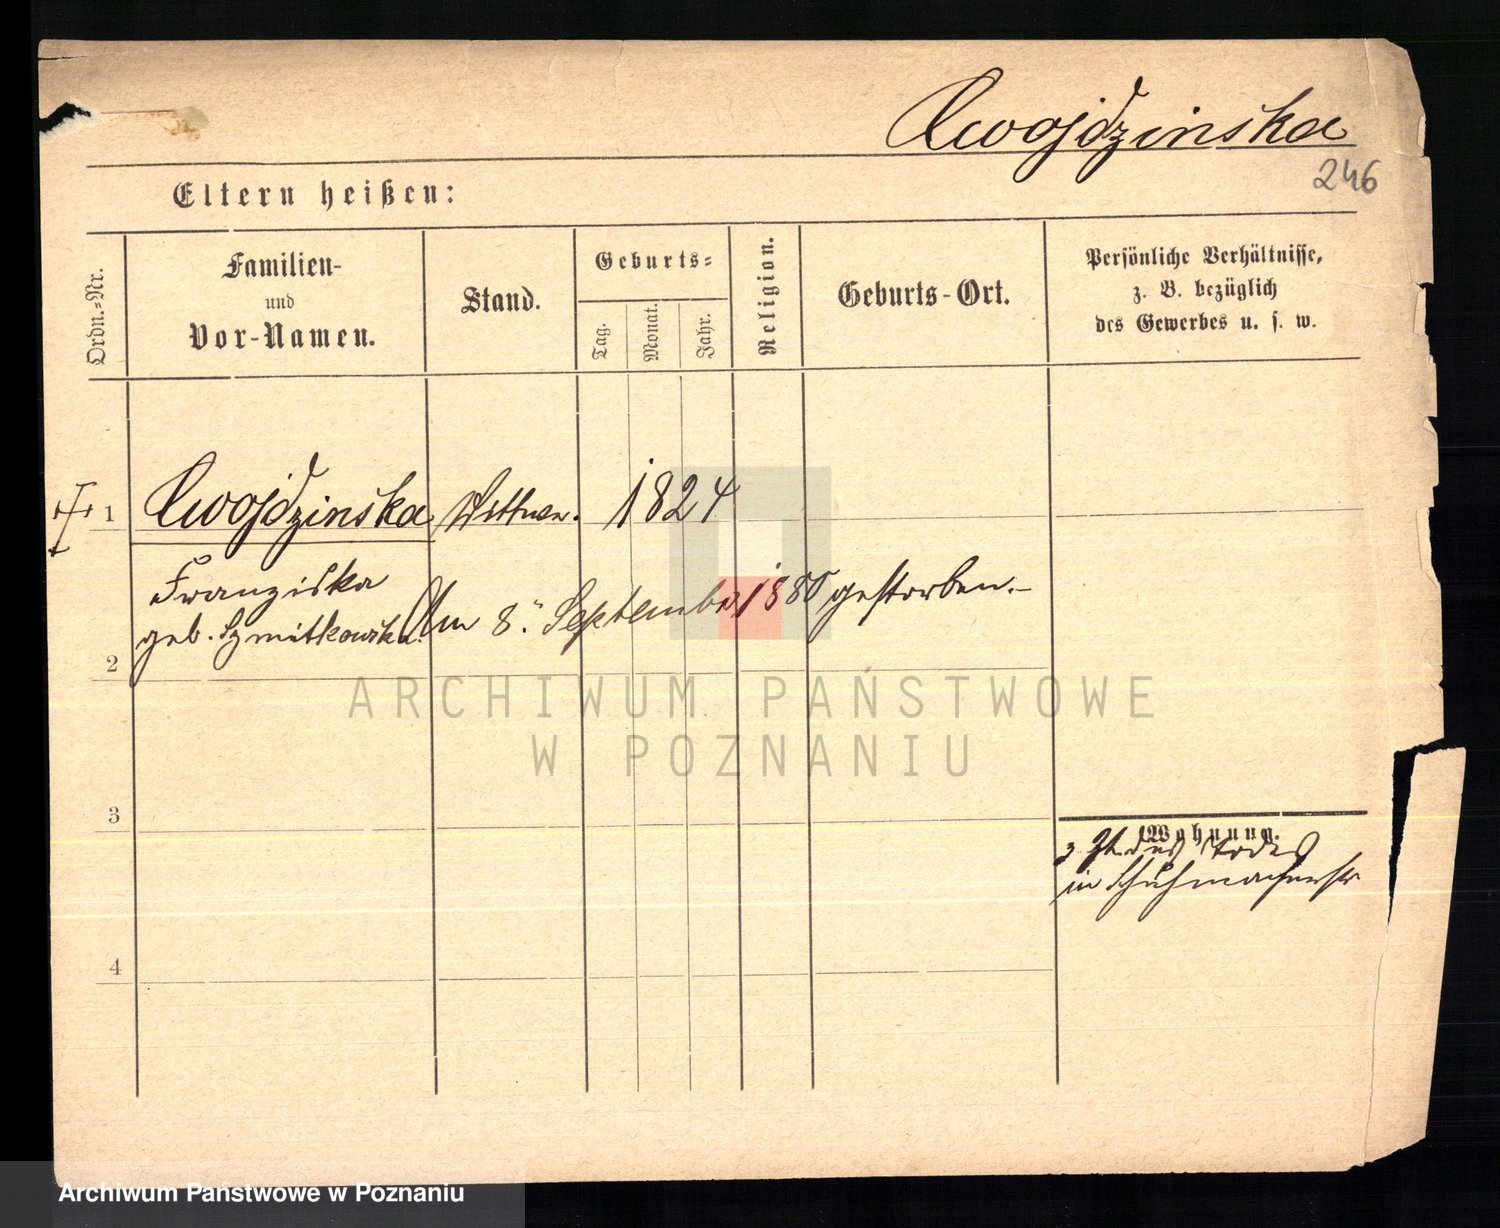 Cwojdzinska
246
Eltern heißen:
Ordn.-Nr.
Familien-
und
Vor-Namen.
Stand.
Geburts-
Tag.
Monat.
Jahr.
Religion.
Geburts-Ort.
Persönliche Verhältnisse,
z. B. bezüglich
des Gewerbes u. s. w.
1 Cwojdzinska Wittwe. 1824
Franziska
geb. Am 8. September 1880 gestorben.-
2
ARCHIWUM PAŃSTWOWE
W POZNANIU
3
Wohnung.
z. Zt. des Todes
in Schuhmacherstr
4
Archiwum Państwowe w Poznaniu